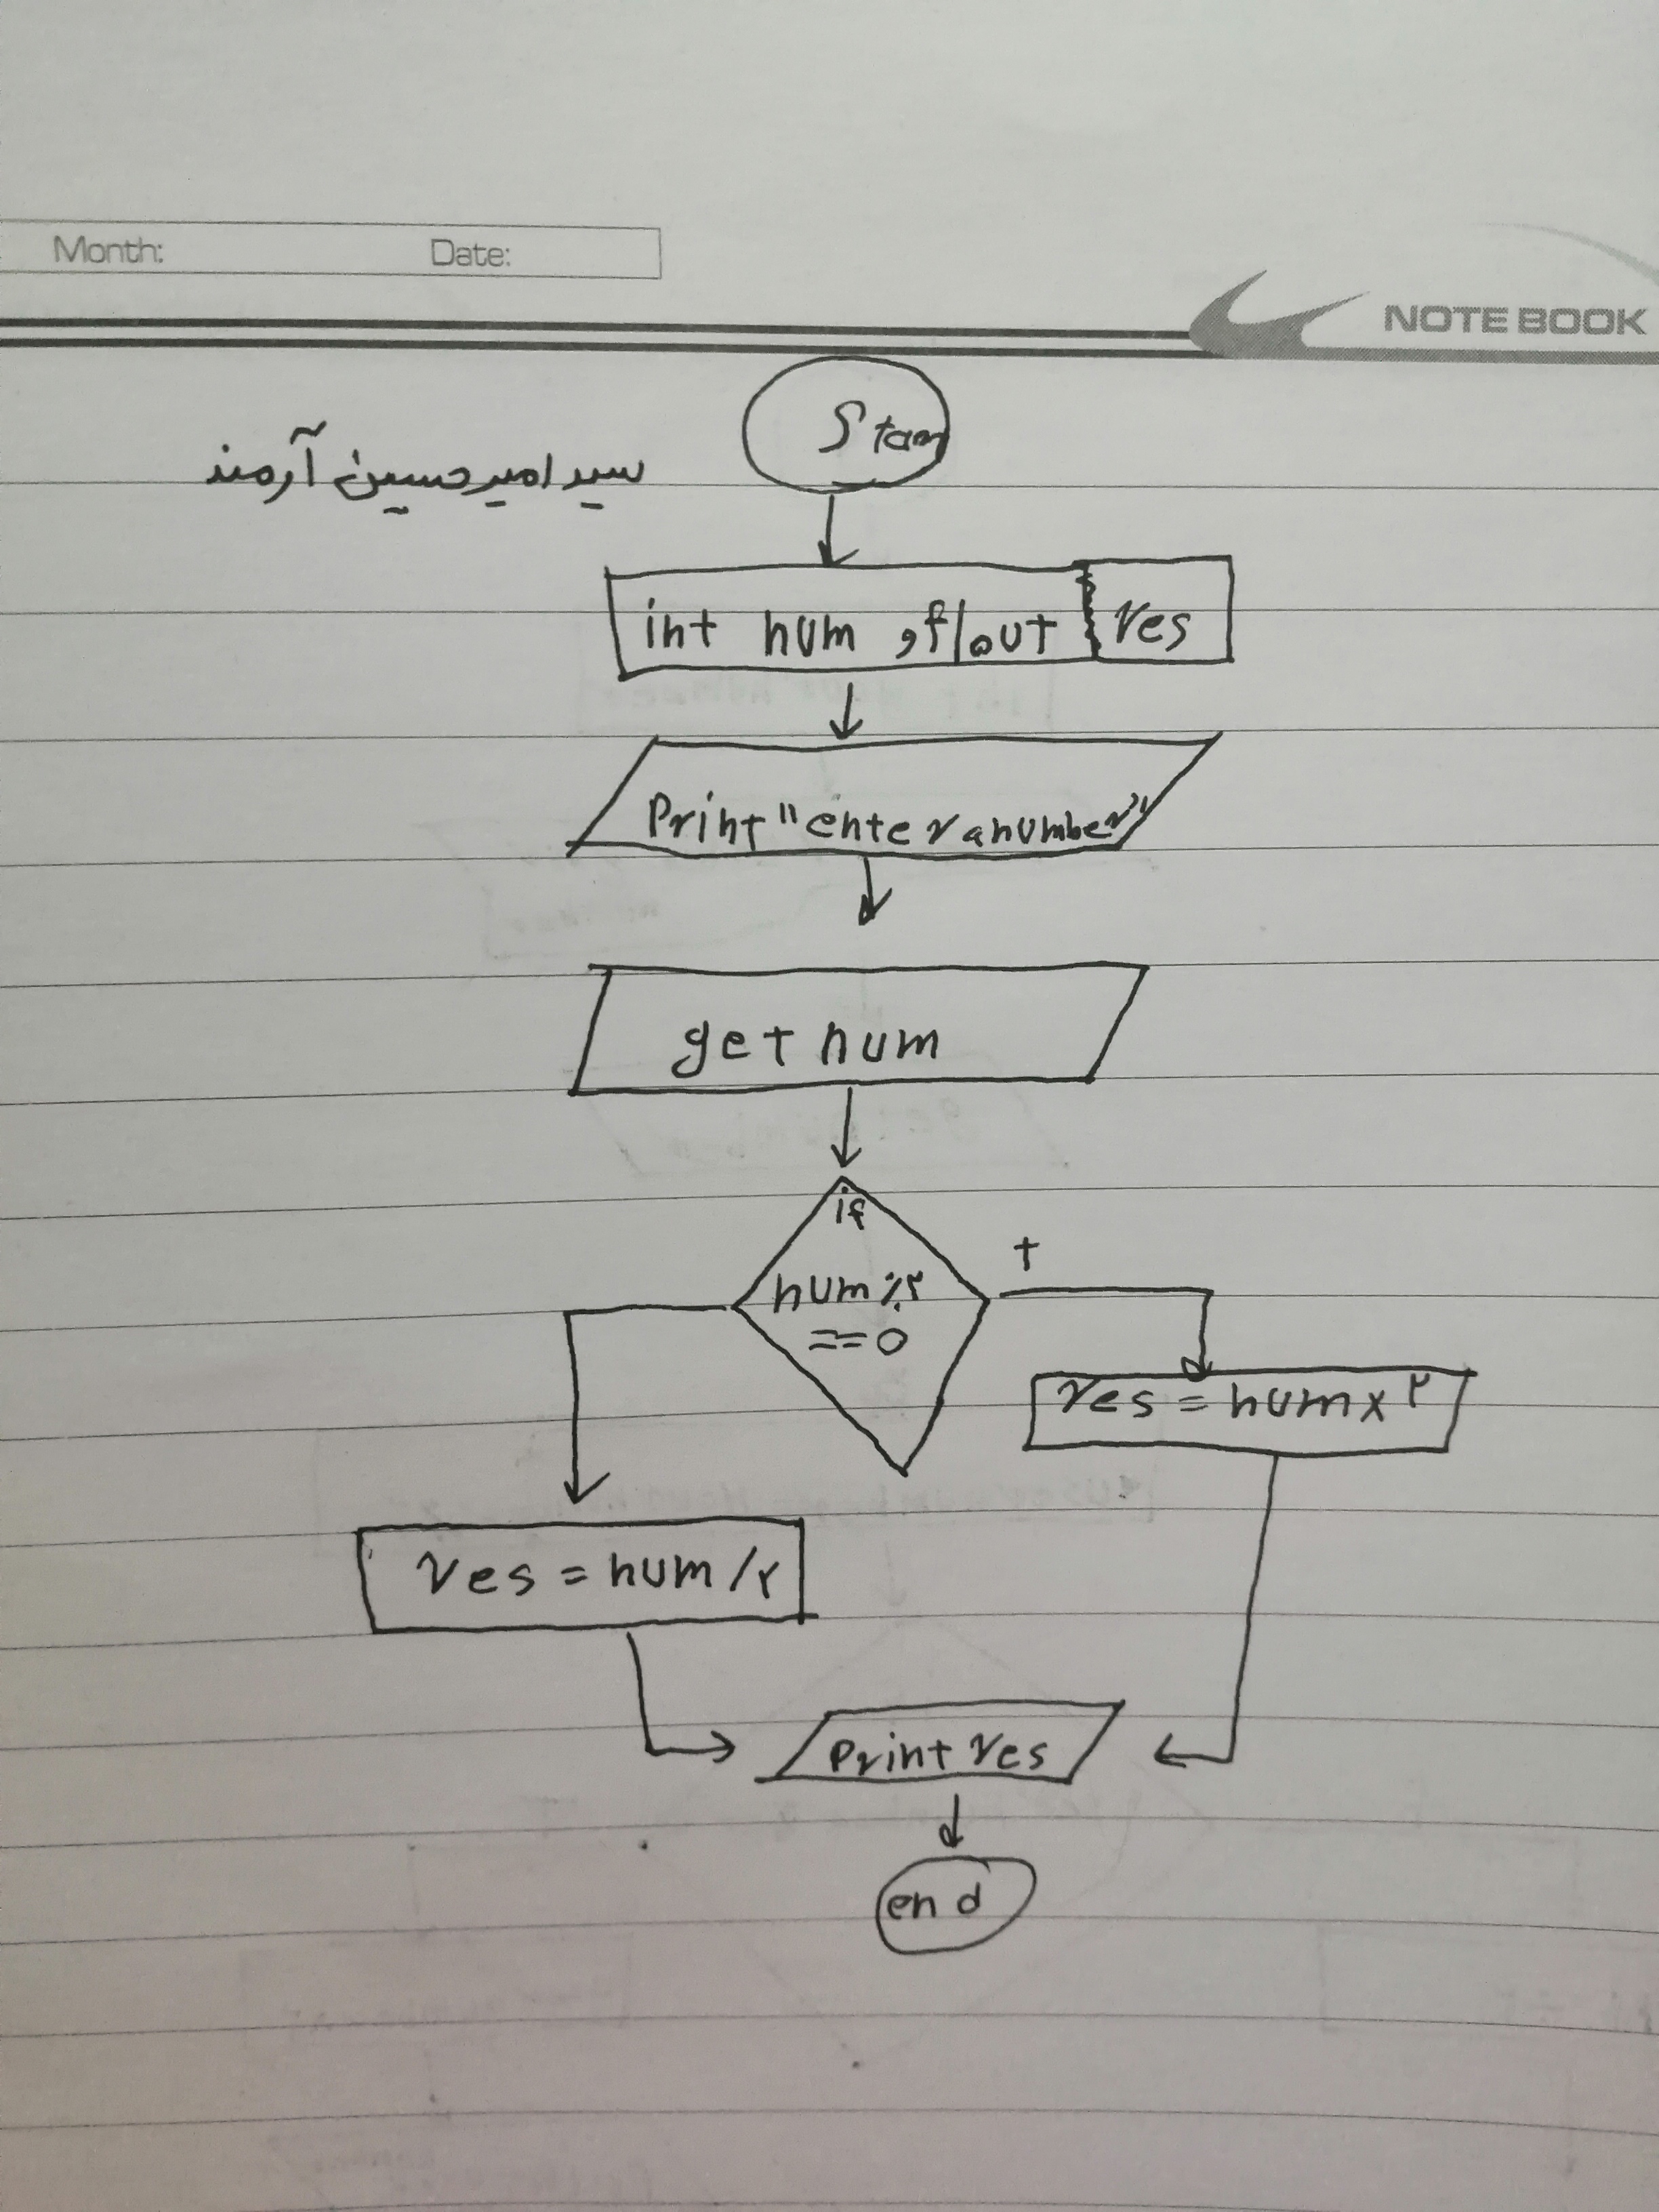 Month: Date:
NOTE BOOK
سید امیرحسین آرمند
int num , flout res
Print "enter a number"
get num
if
num٪۲
==0
t
res = num x ۲
res = num /۲
Print res
end